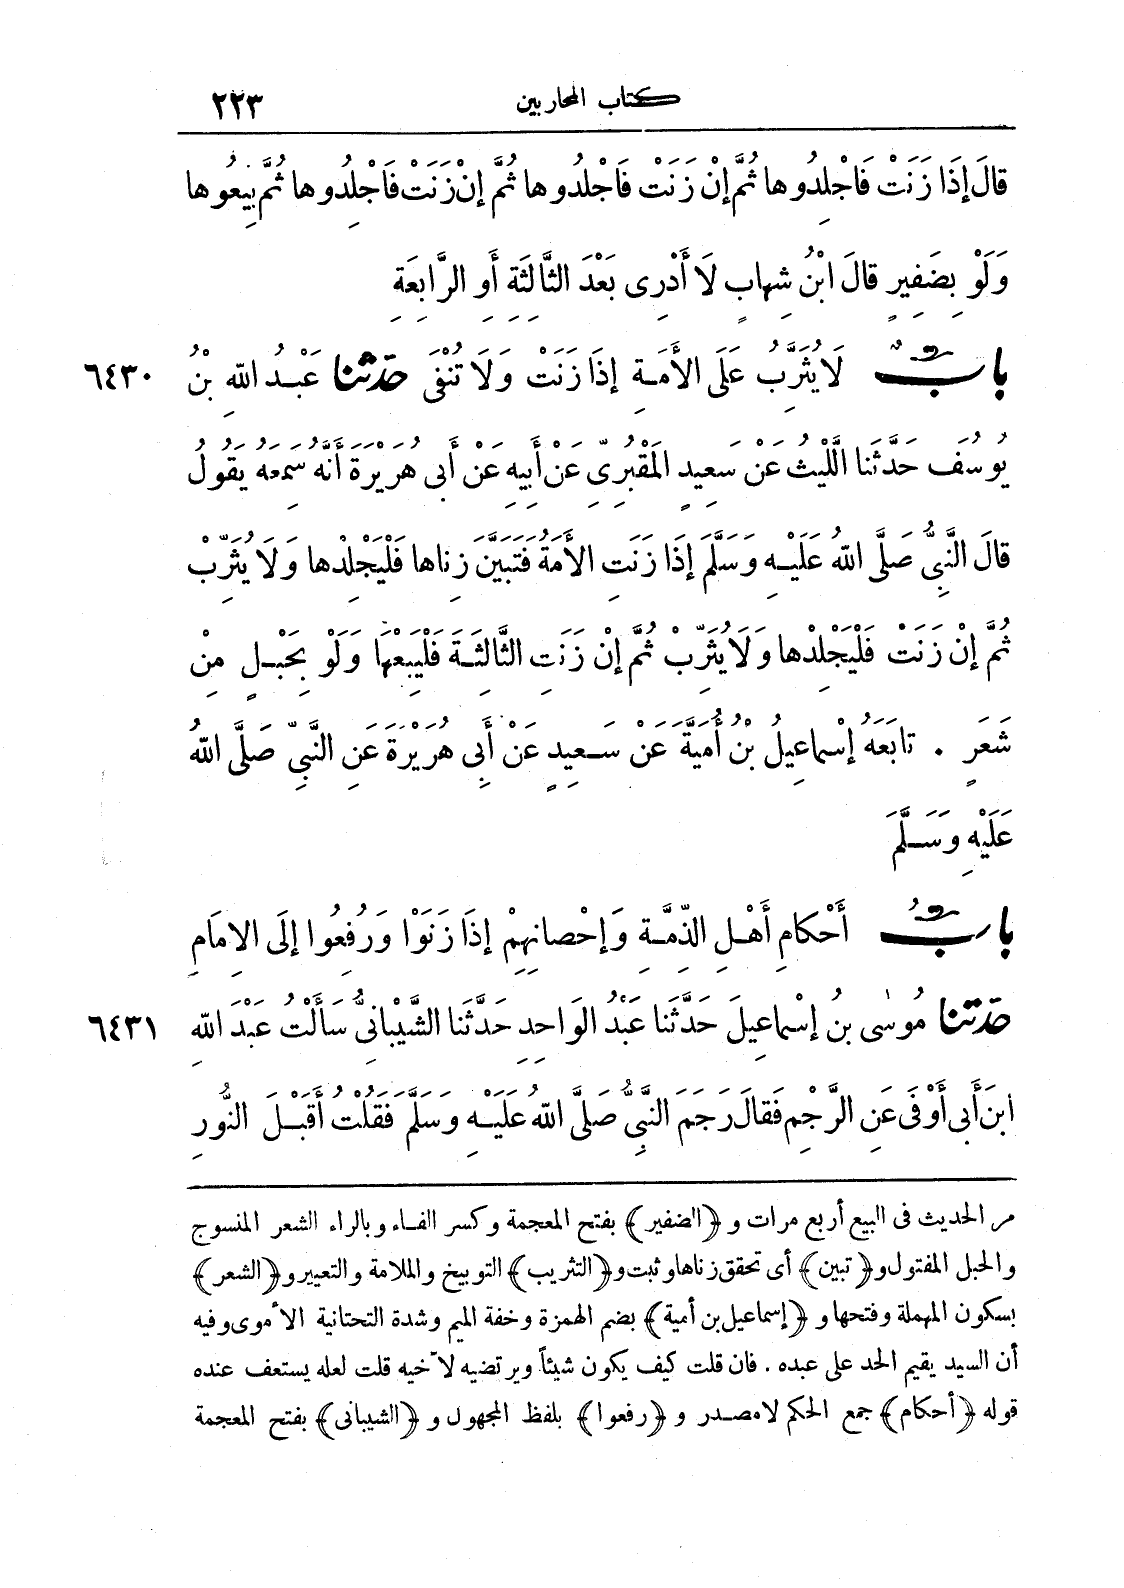 كتاب المحاربين ٢٢٣
قالَ إِذَا زَنَتْ فَاجْلِدُوها ثُمَّ إِنْ زَنَتْ فَاجْلِدُوها ثُمَّ إِنْ زَنَتْ فَاجْلِدُوها ثُمَّ بِيعُوها
وَلَوْ بِضَفِيرٍ قالَ ابْنُ شِهابٍ لَا أَدْرِى بَعْدَ الثَّالِثَةِ أَوِ الرَّابِعَةِ
بابٌ لَا يُثَرَّبُ عَلَى الأَمَةِ إِذَا زَنَتْ وَلَا تُنْفَى حَدَّثَنا عَبْدُ اللهِ بْنُ ٦٤٣٠
يُوسُفَ حَدَّثَنا اللَّيْثُ عَنْ سَعِيدٍ المَقْبُرِىِّ عَنْ أَبِيهِ عَنْ أَبِى هُرَيْرَةَ أَنَّهُ سَمِعَهُ يَقُولُ
قالَ النَّبِىُّ صَلَّى اللهُ عَلَيْهِ وَسَلَّمَ إِذَا زَنَتِ الأَمَةُ فَتَبَيَّنَ زِناها فَلْيَجْلِدْها وَلَا يُثَرِّبْ
ثُمَّ إِنْ زَنَتْ فَلْيَجْلِدْها وَلَا يُثَرِّبْ ثُمَّ إِنْ زَنَتِ الثَّالِثَةَ فَلْيَبِعْها وَلَوْ بِحَبْلٍ مِنْ
شَعَرٍ . تابَعَهُ إِسْماعِيلُ بْنُ أُمَيَّةَ عَنْ سَعِيدٍ عَنْ أَبِى هُرَيْرَةَ عَنِ النَّبِىِّ صَلَّى اللهُ
عَلَيْهِ وَسَلَّمَ
بابُ أَحْكامِ أَهْلِ الذِّمَّةِ وَإِحْصانِهِمْ إِذَا زَنَوْا وَرُفِعُوا إِلَى الإِمَامِ
حَدَّثَنا مُوسَى بنُ إِسْماعِيلَ حَدَّثَنا عَبْدُ الوَاحِدِ حَدَّثَنا الشَّيْبانِىُّ سَأَلْتُ عَبْدَ اللهِ ٦٤٣١
ابنَ أَبِى أَوْفَى عَنِ الرَّجْمِ فَقالَ رَجَمَ النَّبِىُّ صَلَّى اللهُ عَلَيْهِ وَسَلَّمَ فَقُلْتُ أَقَبْلَ النُّورِ
مر الحديث فى البيع أربع مرات و ﴿الضفير﴾ بفتح المعجمة وكسر الفاء وبالراء الشعر المنسوج
والحبل المفتول و﴿تبين﴾ أى تحقق زناها وثبت و﴿التثريب﴾ التوبيخ والملامة والتعيير و﴿الشعر﴾
بسكون المهملة وفتحها و ﴿إسماعيل بن أمية﴾ بضم الهمزة وخفة الميم وشدة التحتانية الأموى وفيه
أن السيد يقيم الحد على عبده . فان قلت كيف يكون شيئاً ويرتضيه لأخيه قلت لعله يستعف عنده
قوله ﴿أحكام﴾ جمع الحكم لا مصدر و ﴿رفعوا﴾ بلفظ المجهول و ﴿الشيبانى﴾ بفتح المعجمة